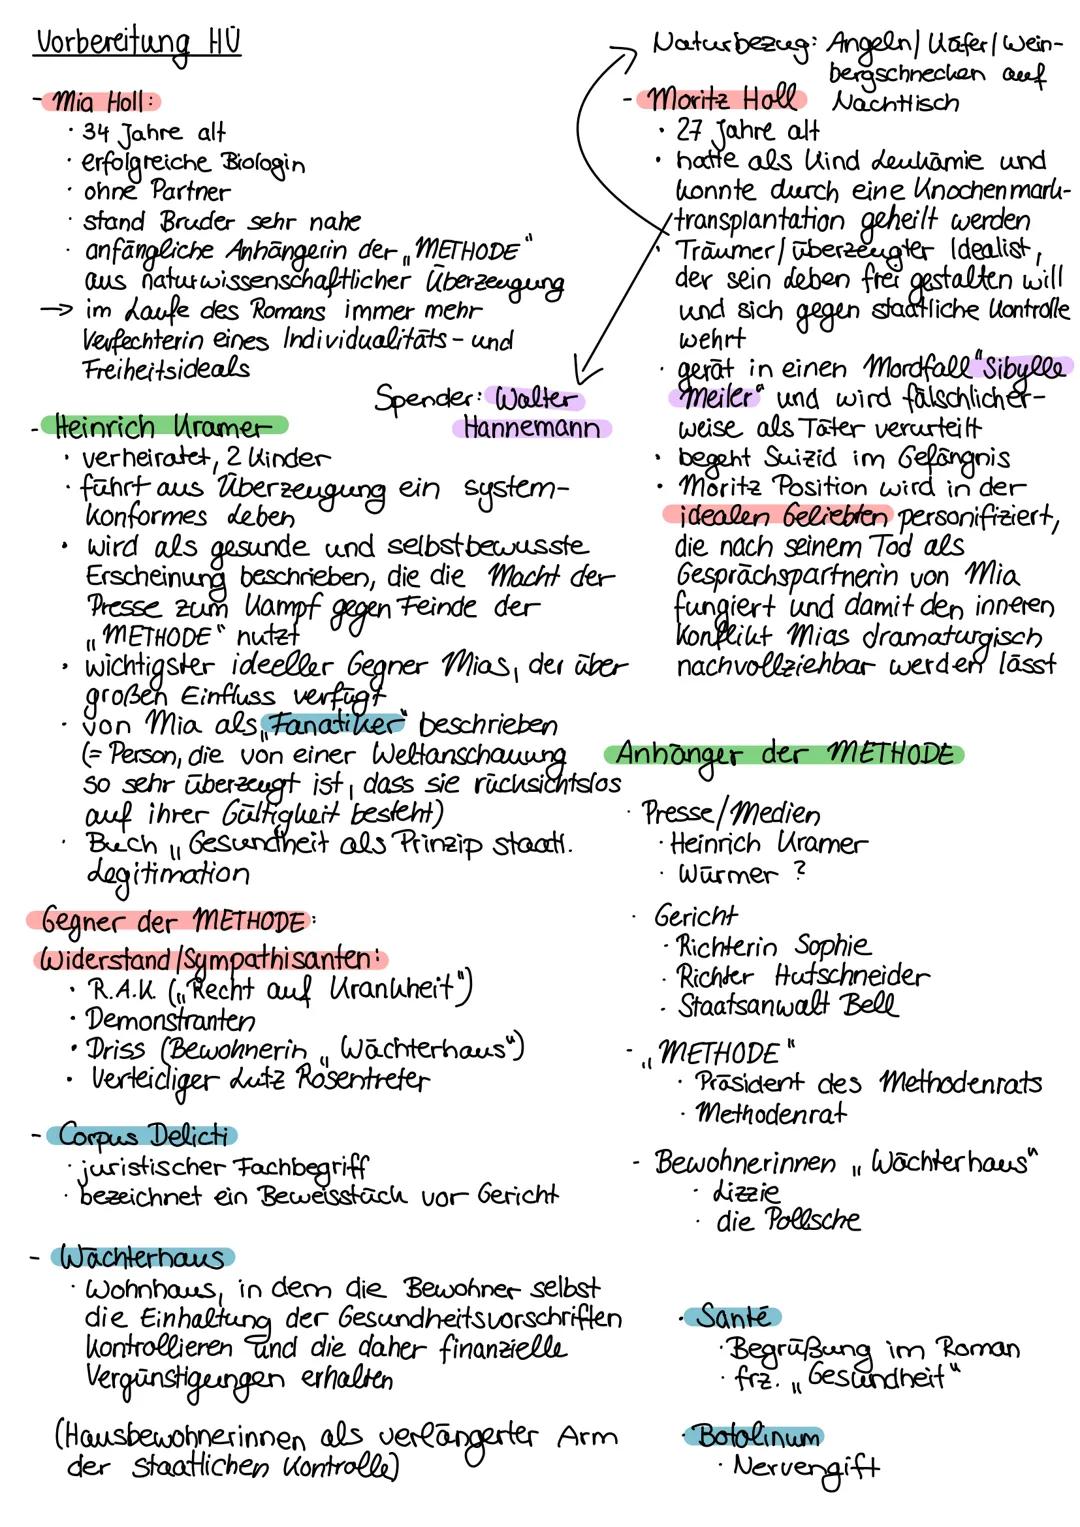 Vorbereitung HÜ
- Mia Holl:
· 34 Jahre alt
· erfolgreiche Biologin
· ohne Partner
· stand Bruder sehr nahe
· anfängliche Anhängerin der „METHODE"
aus naturwissenschaftlicher Überzeugung
→ im Laufe des Romans immer mehr
Verfechterin eines Individualitäts- und
Freiheitsideals
- Heinrich Kramer
· verheiratet, 2 Kinder
· führt aus Überzeugung ein system-
konformes Leben
· wird als gesunde und selbstbewusste
Erscheinung beschrieben, die die Macht der
Presse zum Kampf gegen Feinde der
„METHODE" nutzt
· wichtigster ideeller Gegner Mias, der über
großen Einfluss verfügt
· von Mia als „Fanatiker" beschrieben
(= Person, die von einer Weltanschauung
so sehr überzeugt ist, dass sie rücksichtslos
auf ihrer Gültigkeit besteht)
· Buch „Gesundheit als Prinzip staatl.
Legitimation
Gegner der METHODE:
Widerstand/Sympathisanten:
· R.A.K. („Recht auf Krankheit")
· Demonstranten
· Driss (Bewohnerin „Wächterhaus")
· Verteidiger Lutz Rosentreter
- Corpus Delicti
· juristischer Fachbegriff
· bezeichnet ein Beweisstück vor Gericht
- Wächterhaus
· Wohnhaus, in dem die Bewohner selbst
die Einhaltung der Gesundheitsvorschriften
kontrollieren und die daher finanzielle
Vergünstigungen erhalten
(Hausbewohnerinnen als verlängerter Arm
der staatlichen Kontrolle)
Naturbezug: Angeln/Käfer/Wein-
bergschnecken auf
Nachttisch
- Moritz Holl
· 27 Jahre alt
· hatte als Kind Leukämie und
konnte durch eine Knochenmark-
transplantation geheilt werden
· Träumer/überzeugter Idealist,
der sein Leben frei gestalten will
und sich gegen staatliche Kontrolle
wehrt
· gerät in einen Mordfall "Sibylle
Meiler" und wird fälschlicher-
weise als Täter verurteilt
· begeht Suizid im Gefängnis
· Moritz Position wird in der
idealen Geliebten personifiziert,
die nach seinem Tod als
Gesprächspartnerin von Mia
fungiert und damit den inneren
Konflikt Mias dramaturgisch
nachvollziehbar werden lässt
Spender: Walter
Hannemann
Anhänger der METHODE
· Presse/Medien
· Heinrich Kramer
· Würmer ?
· Gericht
· Richterin Sophie
· Richter Hutschneider
· Staatsanwalt Bell
- „METHODE"
· Präsident des Methodenrats
· Methodenrat
- Bewohnerinnen „Wächterhaus"
· Lizzie
· die Pollsche
· Santé
· Begrüßung im Roman
· frz. „Gesundheit"
· Botolinum
· Nervengift